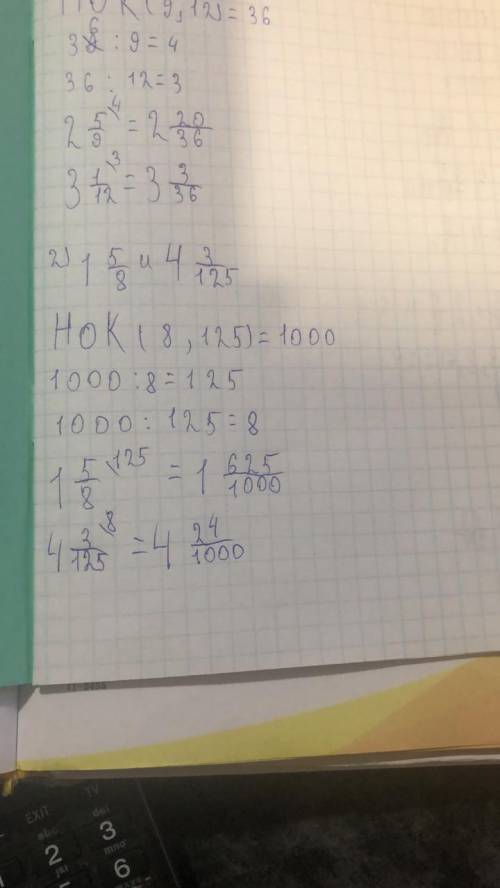 НОК (9, 12) = 36
36 : 9 = 4
36 : 12 = 3
2 5/9 \4 = 2 20/36
3 1/12 \3 = 3 3/36
2) 1 5/8 и 4 3/125
НОК ( 8 , 125) = 1000
1000 : 8 = 125
1000 : 125 = 8
1 5/8 \125 = 1 625/1000
4 3/125 \8 = 4 24/1000
EXIT TV
abc def
2 3
jkl mno
5 6